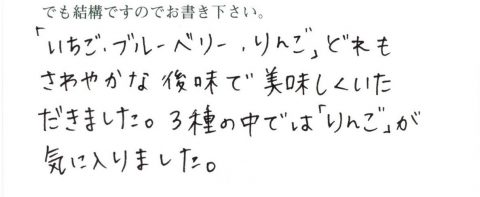 でも結構ですのでお書き下さい。
「いちご・ブルーベリー・りんご」どれも
さわやかな後味で美味しくいた
だきました。3種の中では「りんご」が
気に入りました。